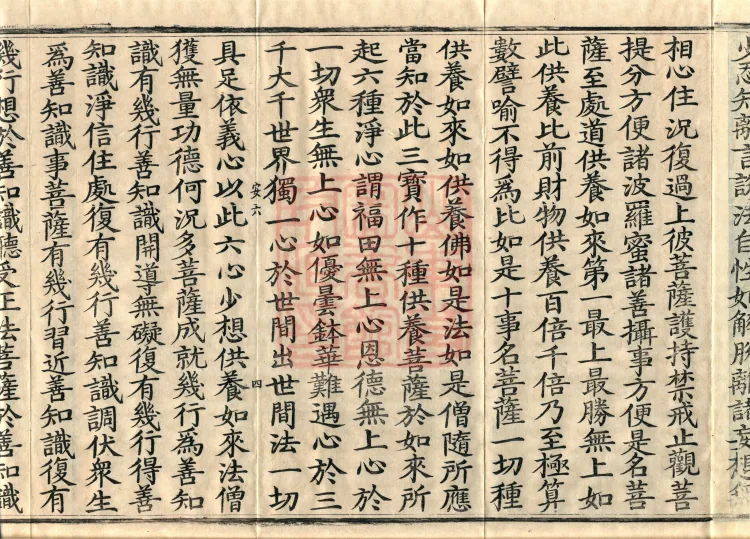 少忍知離言說法自性如解脫離諸妄想
相心住況復過上彼菩薩護持禁戒止觀菩
提分方便諸波羅蜜諸善攝事方便是名菩
薩至處道供養如來第一最上最勝無上如
此供養比前財物供養百倍千倍乃至極算
數譬喻不得為比如是十事名菩薩一切種
供養如來如供養佛如是法如是僧隨所應
當知於此三寶作十種供養菩薩於如來所
起六種淨心謂福田無上心恩德無上心於
一切衆生無上心如優曇鉢華難遇心於三
千大千世界獨一心於世間出世間法一切
安六 四
具足依義心以此六心少想供養如來法僧
獲無量功德何況多菩薩成就幾行為善知
識有幾行善知識開導無礙復有幾行得善
知識淨信住處復有幾行善知識調伏衆生
為善知識事菩薩有幾行習近善知識復有
幾行想於善知識聽受正法菩薩於善知識